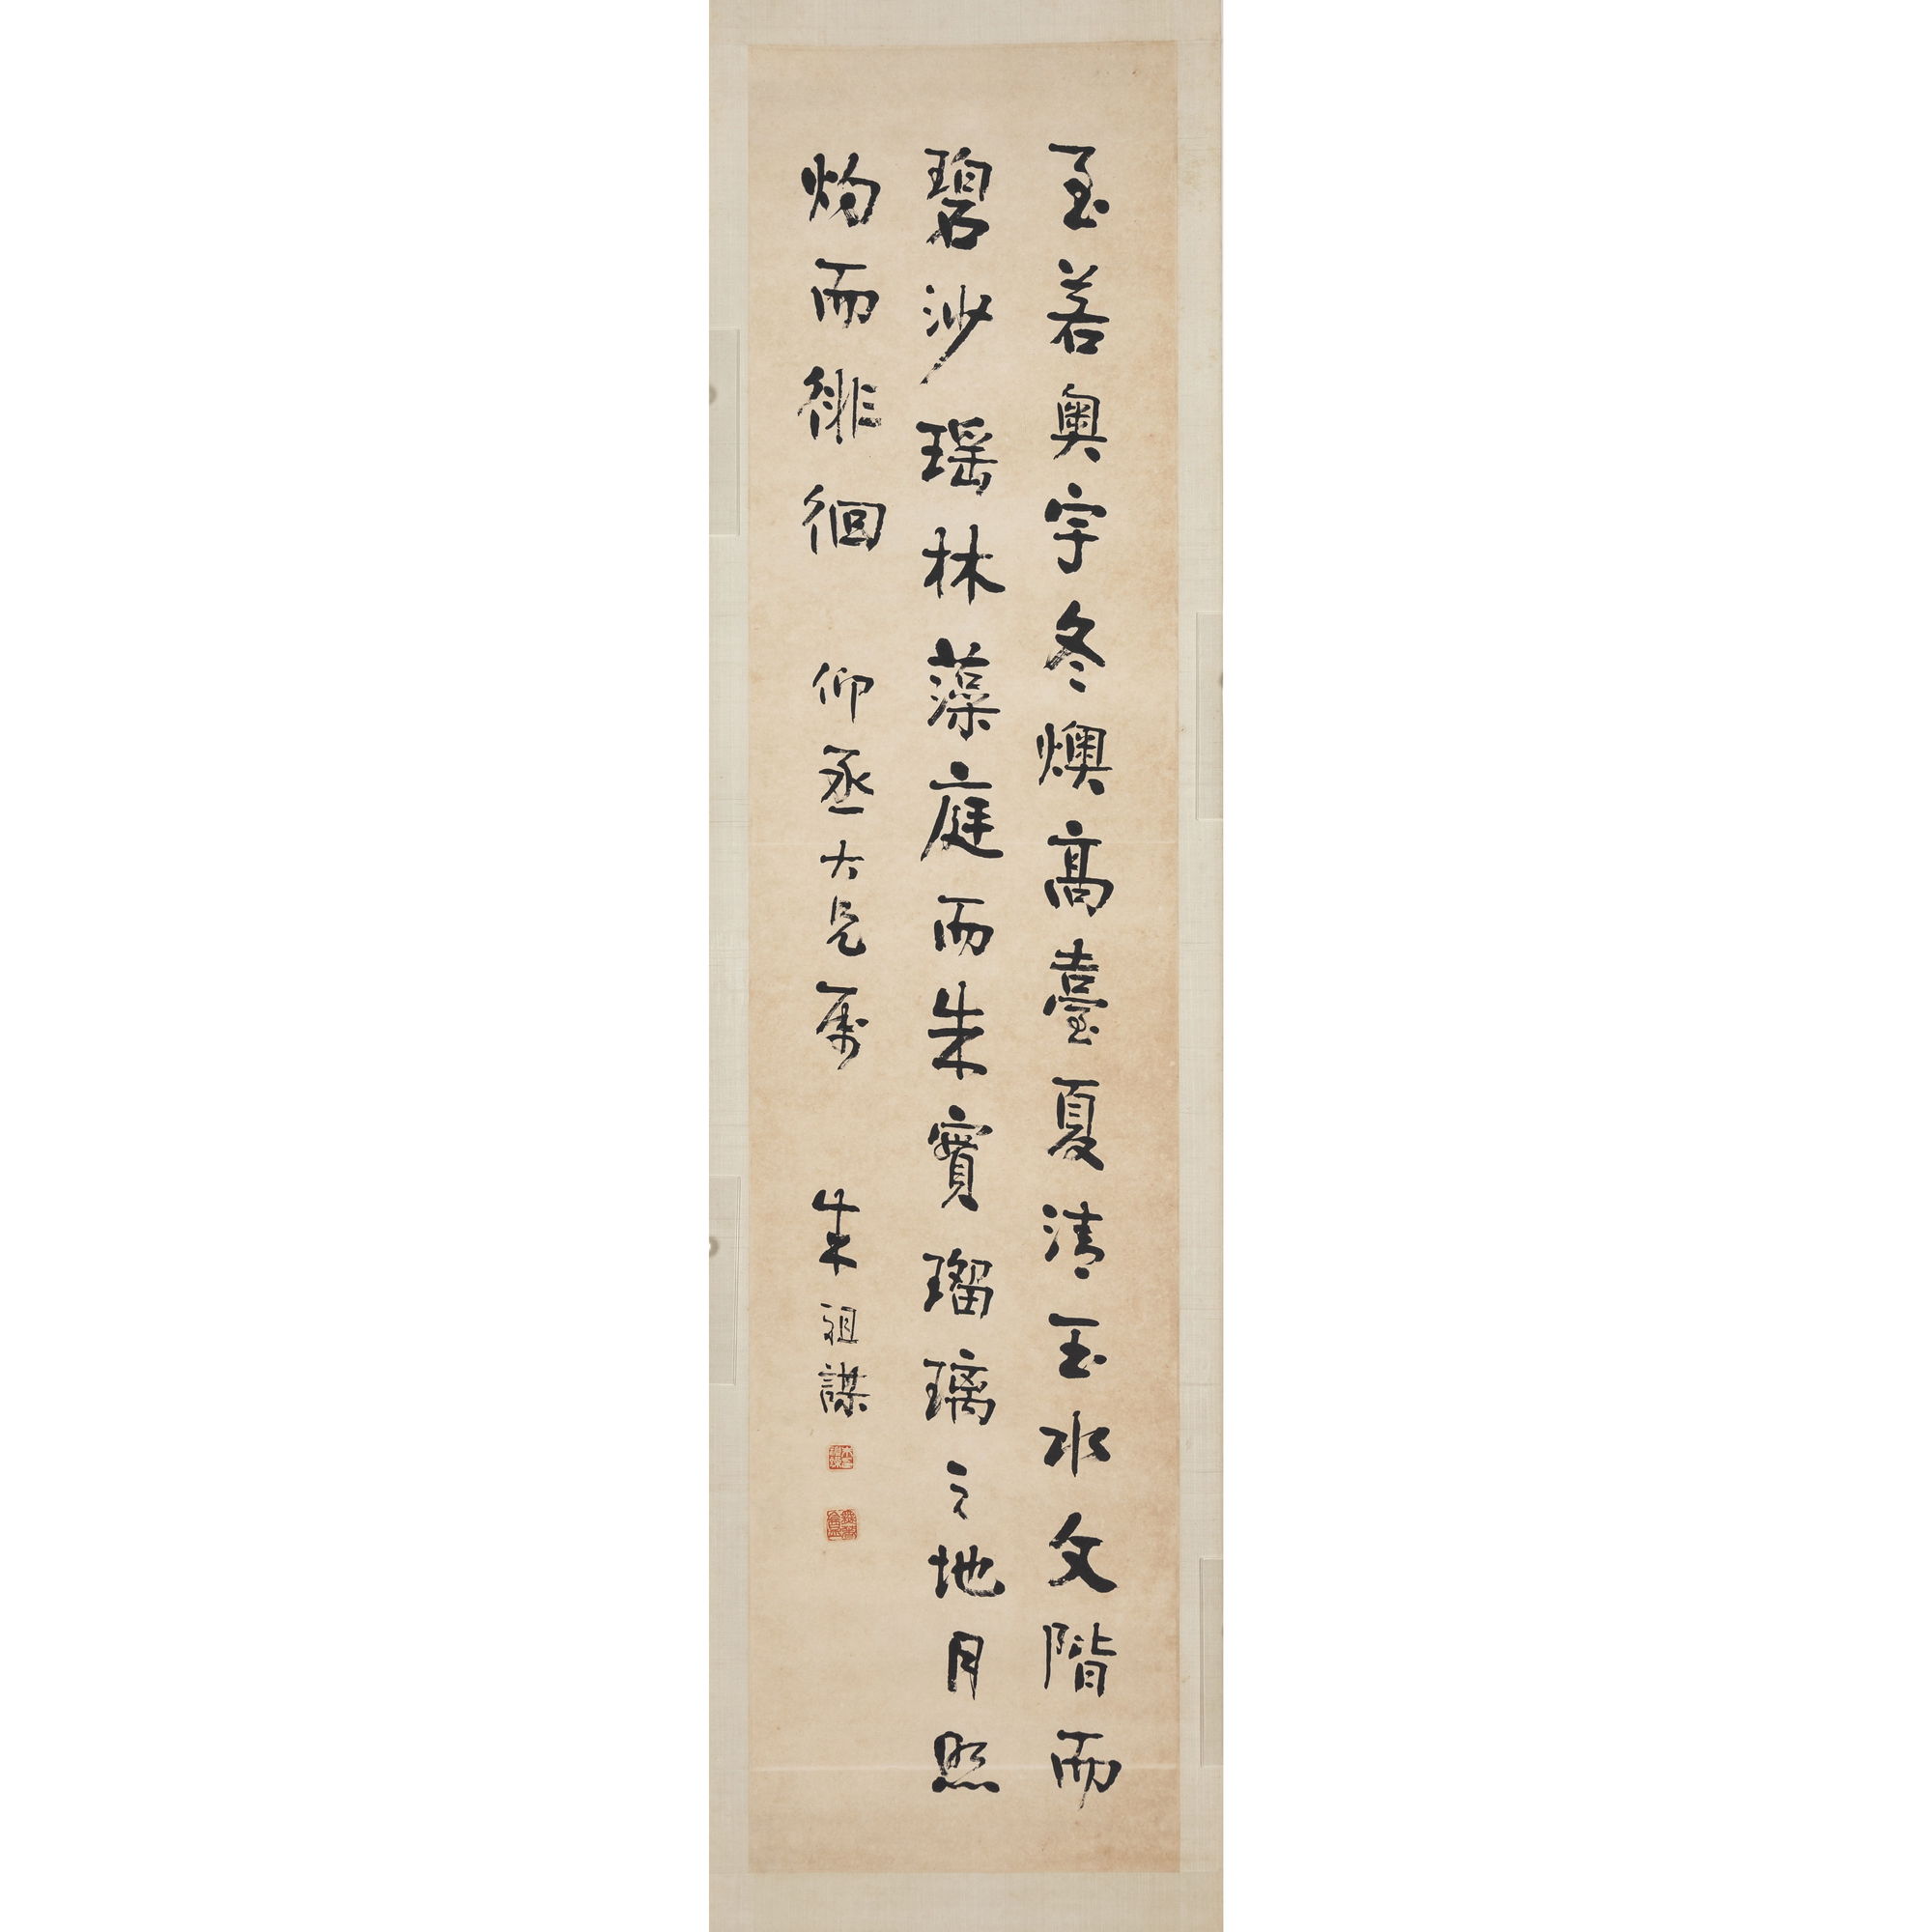 至若奧宇冬燠高臺夏清玉水文階而
碧沙瑤林藻庭而朱實瑠璃之地月照
灼而徘徊 仰丞大兄屬 朱祖謀